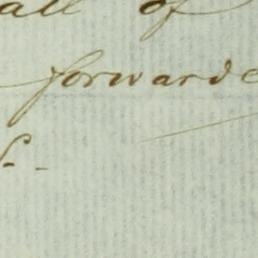 all of
forwarde